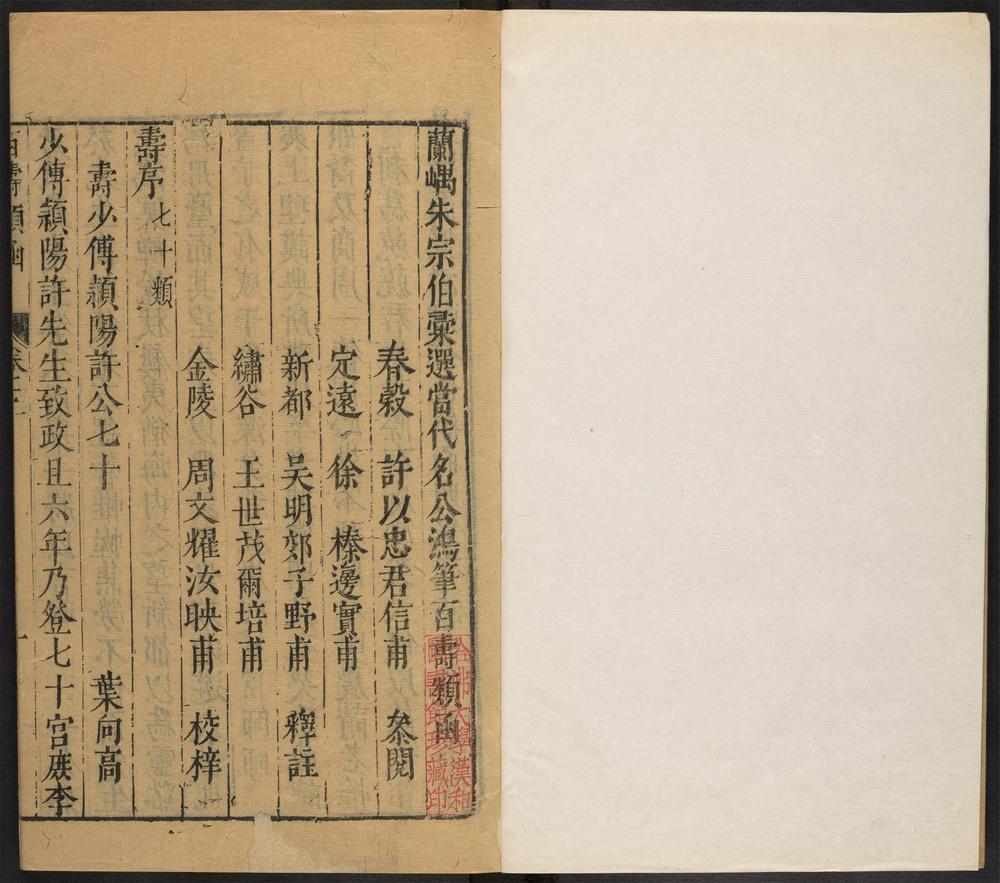 蘭嵎朱宗伯彙選當代名公鴻筆百壽類函
春穀 許以忠君信甫 叅閱
定遠 徐 榛邊實甫
新都 吴明郊子野甫 釋註
繡谷 王世茂爾培甫
金陵 周文耀汝映甫 校梓
壽序 七十類
壽少傅頴陽許公七十 葉向高
少傅頴陽許先生致政且六年乃登七十宫庻李
百壽類函 卷之三 一
哈佛大學漢和
圖書館珍藏印